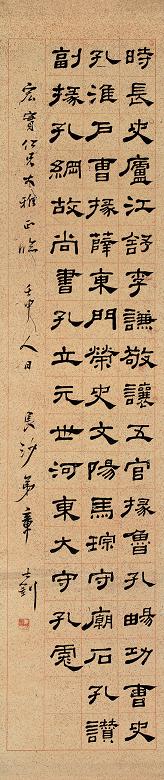 時長史廬江舒李謙敬讓五官掾魯孔暢功曹史
孔淮戶曹掾薛東門榮史文陽馬琮守廟百石孔讚
副掾孔綱故尚書孔立元世河東大守孔彪
宏寶仁兄大雅正臨 壬申人日 長沙 士釗